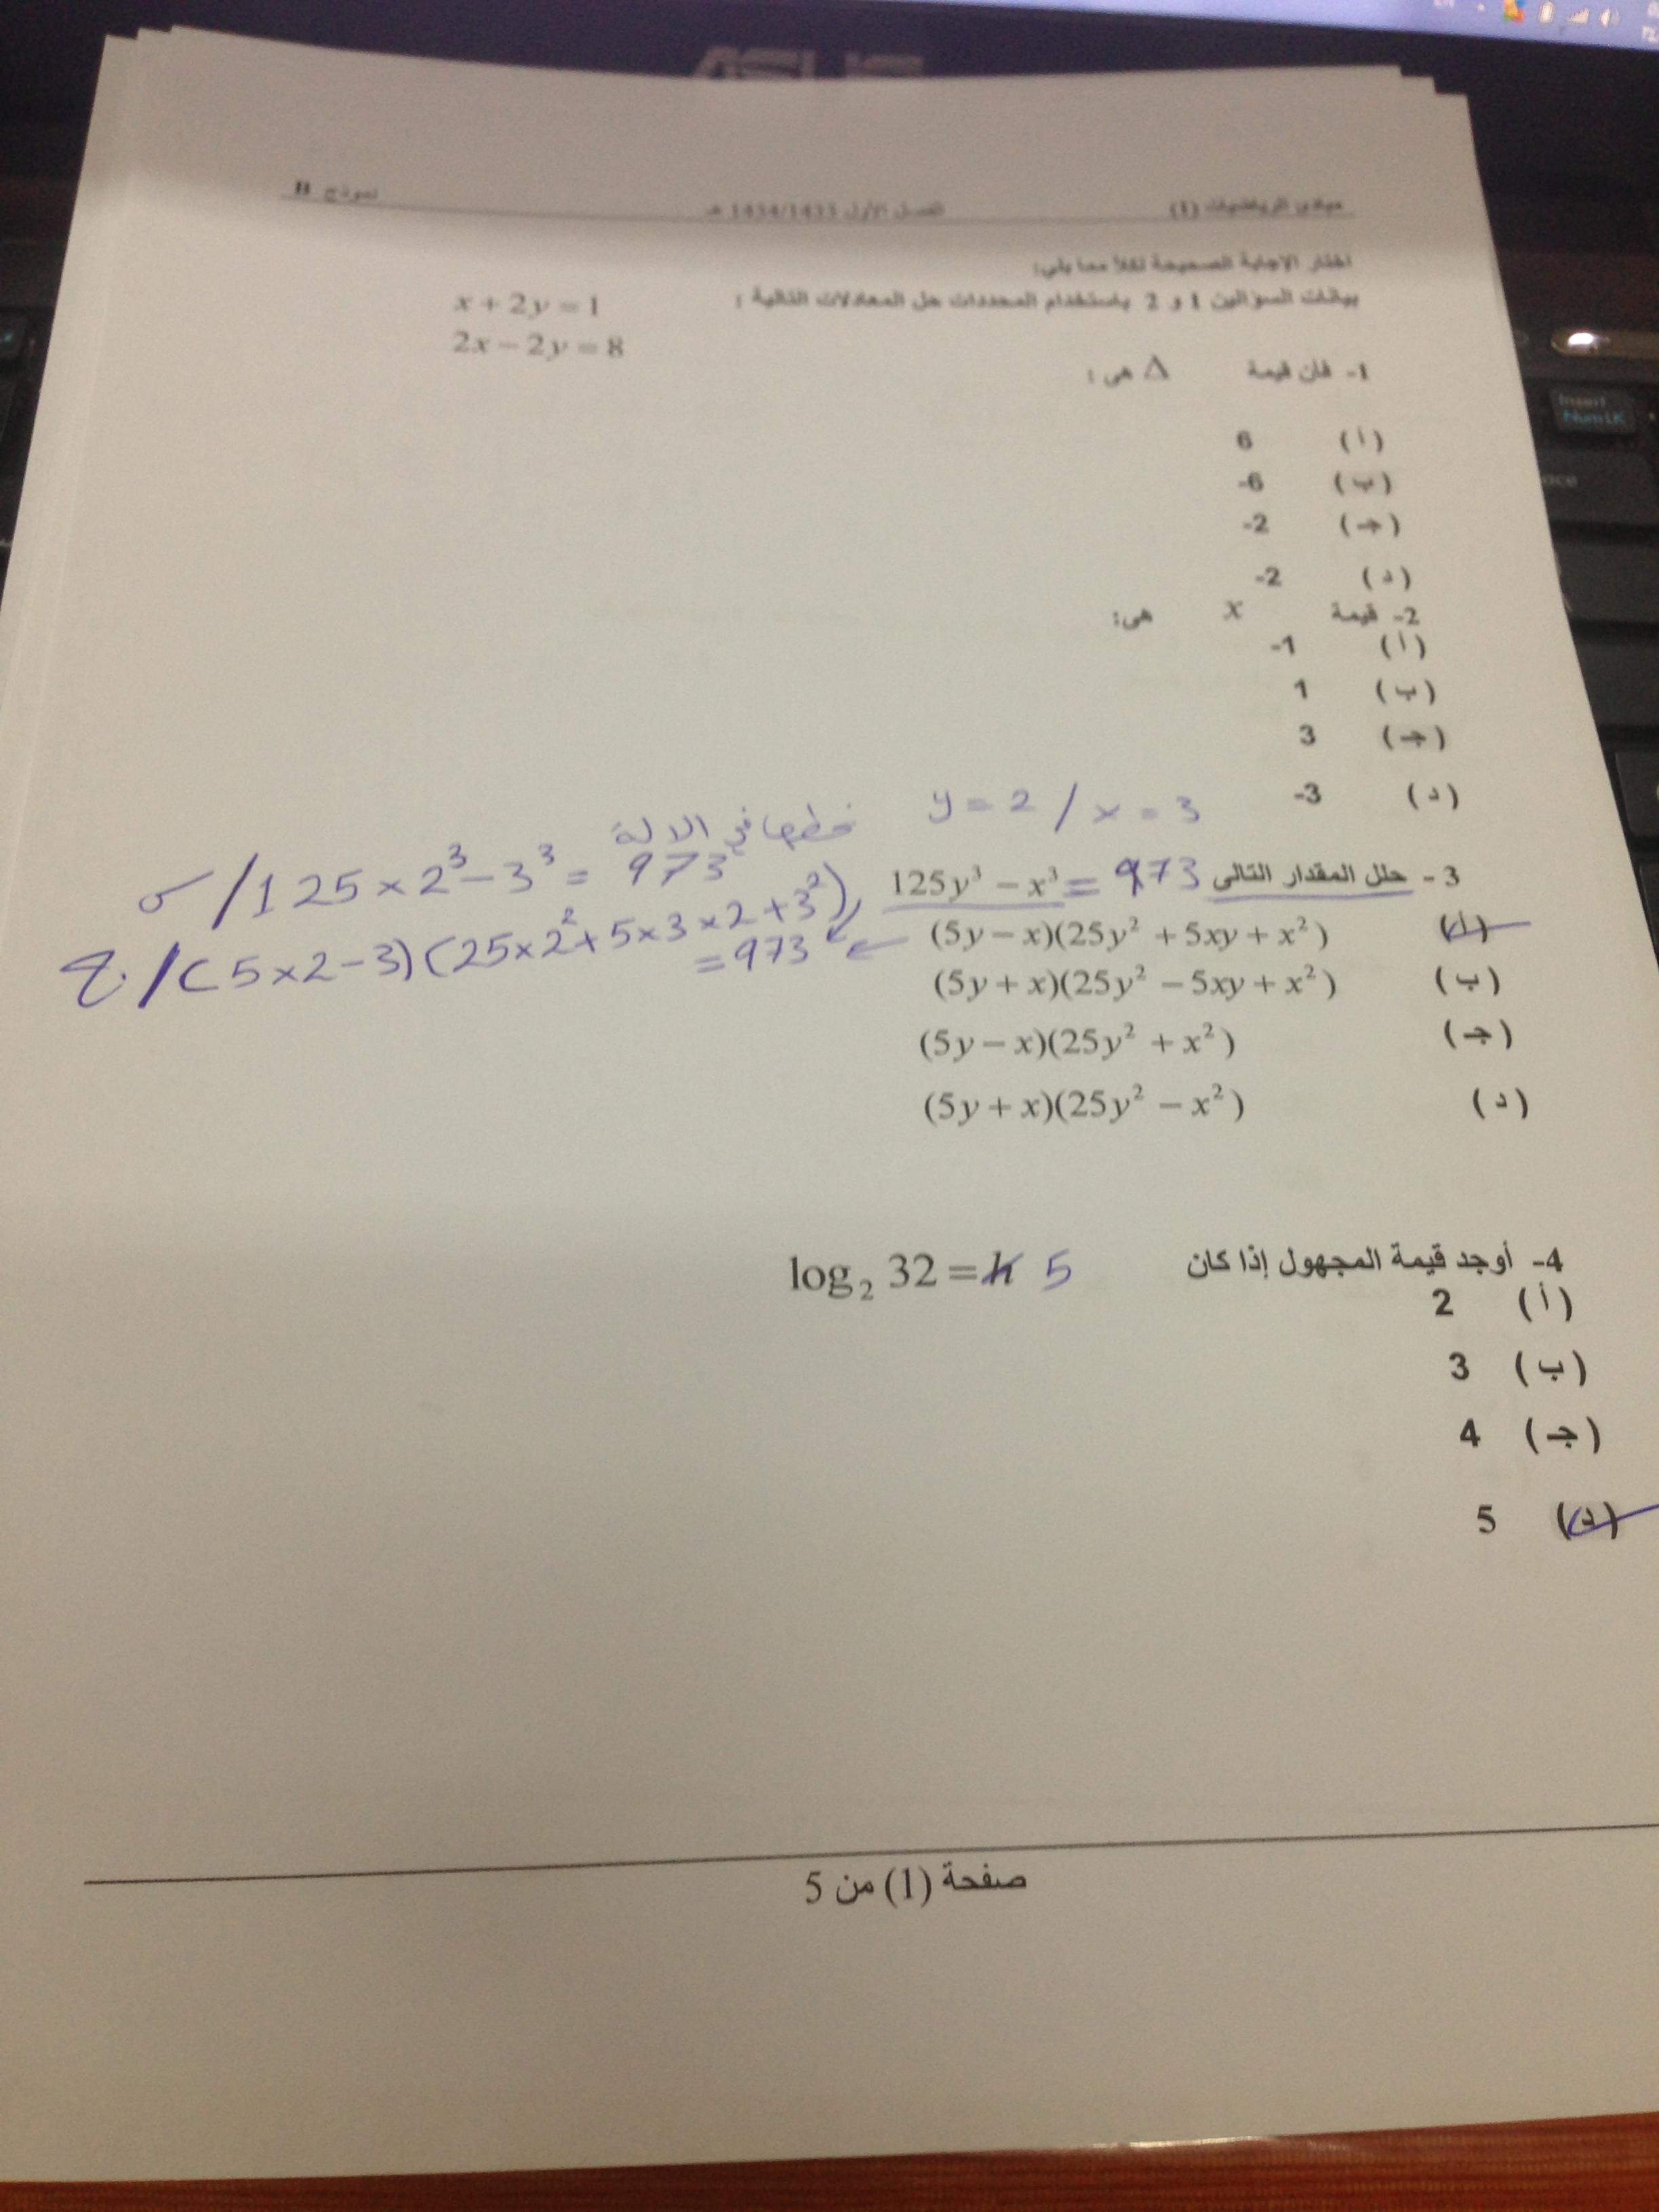 ASUS
مبادئ الرياضيات (1) الفصل الأول 1434/1433 هـ نموذج B
اختار الاجابة الصحيحة لكلا مما يلي:
بيانات السؤالين 1 و 2 باستخدام المحددات حل المعادلات التالية : x + 2y = 1
2x − 2y = 8
1- فأن قيمة Δ هي :
(أ) 6
(ب) -6
(جـ) -2
(د) -2
2- قيمة x هي:
(أ) -1
(ب) 1
(جـ) 3
(د) -3
y = 2 / x = 3
في الالة
س / 125 × 2³ − 3³ = 973
3 - حلل المقدار التالى 125y³ − x³ = 973
(أ) (5y − x)(25y² + 5xy + x²)
ج / (5×2−3)(25×2²+5×3×2+3²)
= 973
(ب) (5y + x)(25y² − 5xy + x²)
(جـ) (5y − x)(25y² + x²)
(د) (5y + x)(25y² − x²)
4- أوجد قيمة المجهول إذا كان log₂ 32 = k 5
(أ) 2
(ب) 3
(جـ) 4
(د) 5
صفحة (1) من 5
Insert
NumLK